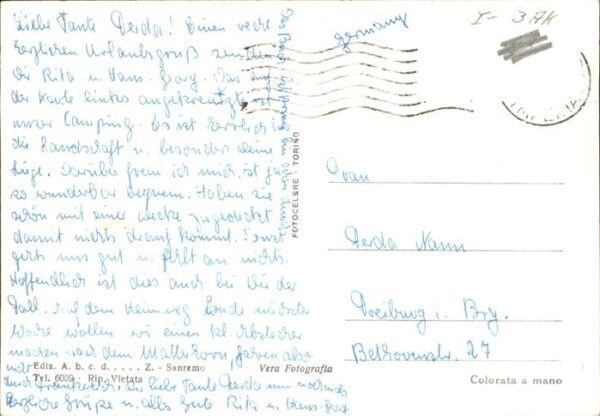 Liebe Tante Gerda! Einen recht
herzlichen Urlaubsgruß senden
Dir Rita u. Hans-Georg. Das auf
der Karte links angekreuzte ist
unser Camping. Es ist herrlich hier
die Landschaft u. besonders deine
Liege. Darüber freu ich mich, ist ja
so wunderbar bequem. Haben sie
schön mit einer Decke zugedeckt
damit nichts drauf kommt. Sonst
geht's uns gut u. fehlt an nichts.
Hoffentlich ist dies auch bei Dir der
Fall. Auf dem Heimweg Ende nächster
Woche wollen wir einen kl. Abstecher
machen nach dem Matterhorn, fahren also
durch Frankreich. Dir liebe Tante Gerda nun nochmals
herzliche Grüße u. alles Gute Rita u. Hans-Georg
Germany
I - 3 AK
FOTOCELERE - TORINO
Frau
Gerda Nann
Freiburg i. Brg.
Beethovenstr. 27
Ediz. A. b. c. d. . . . . Z. - Sanremo
Tel. 6009 - Rip. Vietata
Vera Fotografia
Colorata a mano